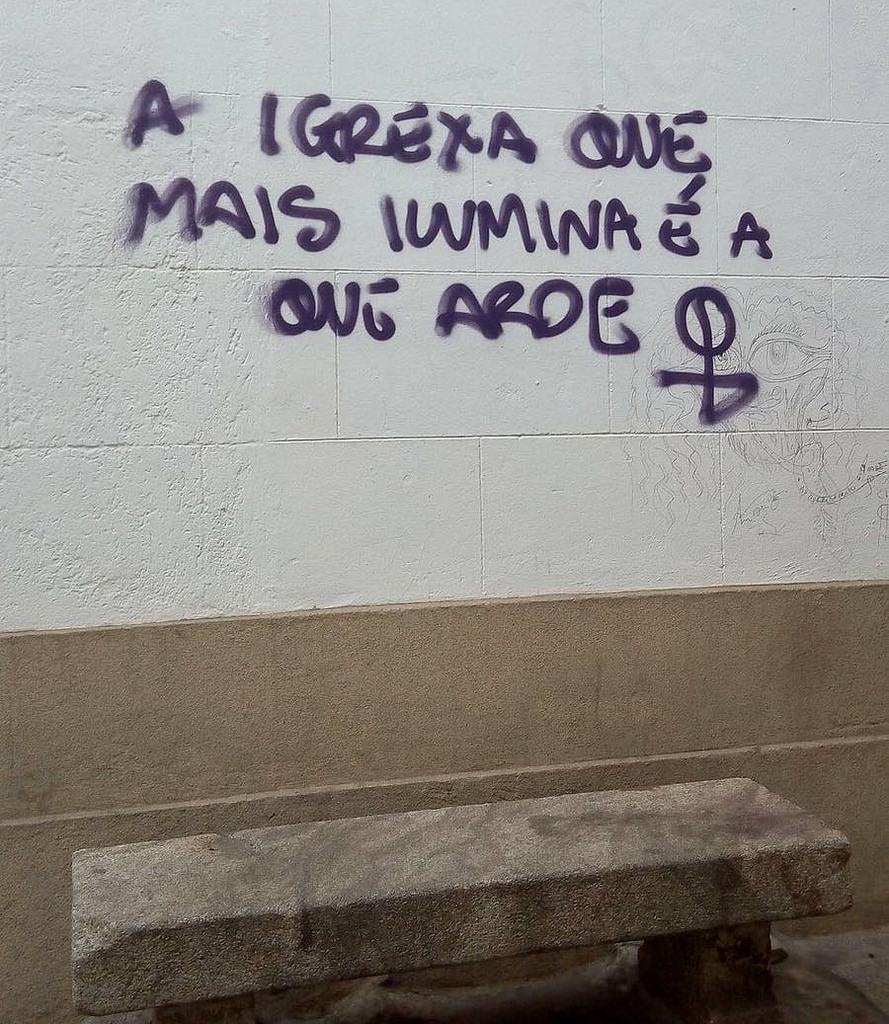 A IGREXA QUE
MAIS ILUMINA É A
QUE ARDE